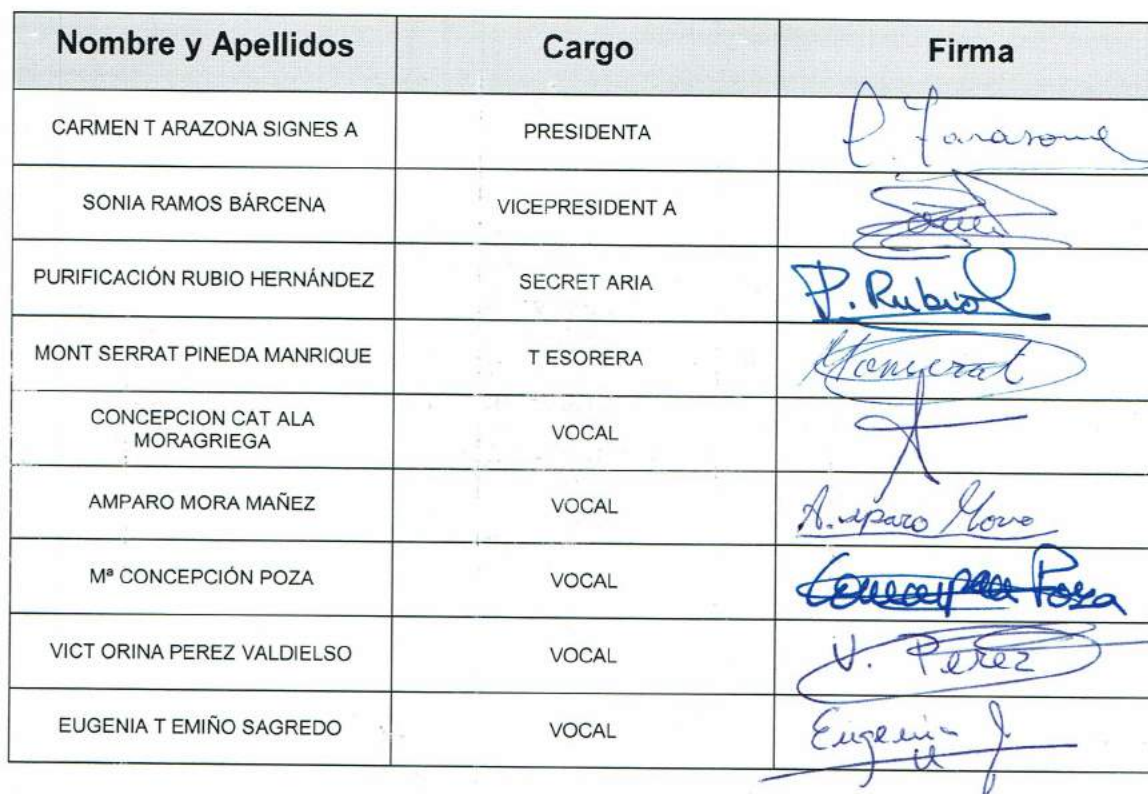 Nombre y Apellidos Cargo Firma
CARMEN T ARAZONA SIGNES A PRESIDENTA P. Tarasona
SONIA RAMOS BÁRCENA VICEPRESIDENT A Sonia
PURIFICACIÓN RUBIO HERNÁNDEZ SECRET ARIA P. Rubio
MONT SERRAT PINEDA MANRIQUE T ESORERA Monserrat
CONCEPCION CAT ALA
MORAGRIEGA
VOCAL
AMPARO MORA MAÑEZ VOCAL Amparo Mora
Mª CONCEPCIÓN POZA VOCAL Concepción Poza
VICT ORINA PEREZ VALDIELSO VOCAL V. Perez
EUGENIA T EMIÑO SAGREDO VOCAL Eugenia